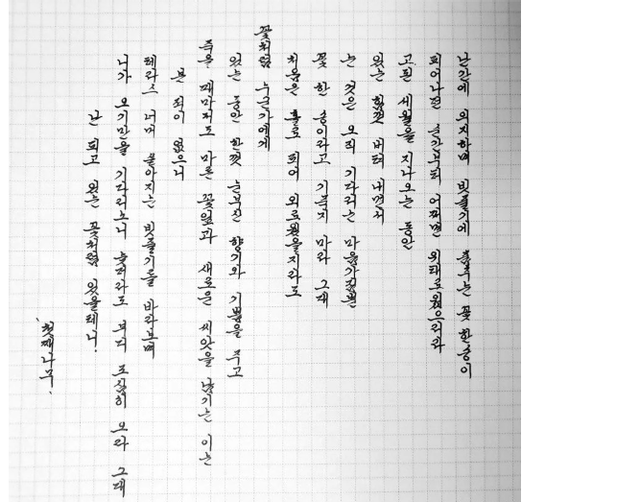 난간에 의지하며 빗줄기에 춤추는 꽃 한송이
피어나던 순간부터 어쩌면 위태로웠으리라
고된 세월을 지나오는 동안
있는 힘껏 버텨 내면서
는 것은 오직 기다리는 마음가짐뿐
꽃 한 송이라고 기죽지 마라 그대
처음은 홀로 피어 외로웠을지라도
꽃처럼 누군가에게
있는 동안 한껏 눈부신 향기와 기쁨을 주고
죽을 때마저도 마른 꽃잎과 새로운 씨앗을 남기는 이는
본 적이 없으니
테라스 너머 쏟아지는 빗줄기를 바라보며
니가 오기만을 기다리노니 늦더라도 부디 조심히 오라 그대
난 피고 있는 꽃처럼 있을테니.
'첫째나무.